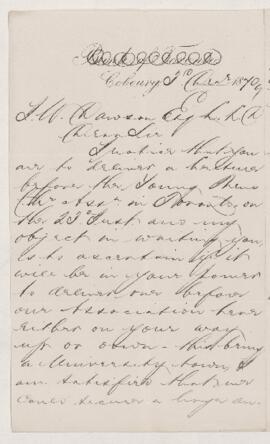 Cobourg 3d 1879
J. W. Dawson Esq L.L.D
Dear Sir
I notice that you
are to deliver a lecture
before the Young Mens
Chr Assn in Toronto, on
the 23d Inst and my
object in writing you
is to ascertain if it
will be in your power
to deliver one before
our Association here
either on your way
up or down - this being
a University town, I
am satisfied that we
could secure a large au